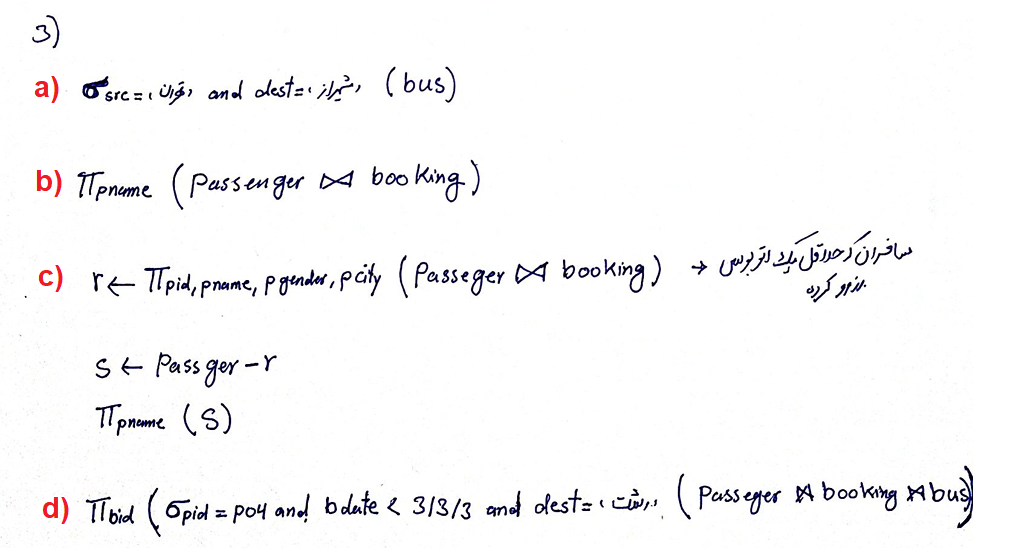 3)
a) σ src = ، تهران، and dest = ، شیراز، (bus)
b) Π pname (Passenger ⋈ booking)
c) r ← Π pid, pname, pgender, pcity (Passeger ⋈ booking) → مسافران که حداقل یک اتوبوس
رزرو کرده
s ← Passger - r
Π pname (S)
d) Π bid (σ pid = p04 and bdate < 3/3/3 and dest = ، رشت، (Passeger ⋈ booking ⋈ bus))